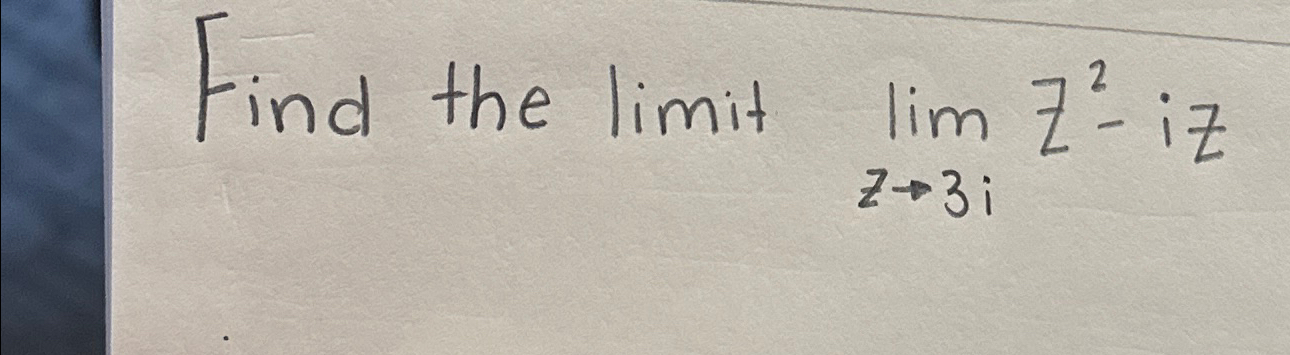 Find the limit lim z² - iz
z→3i